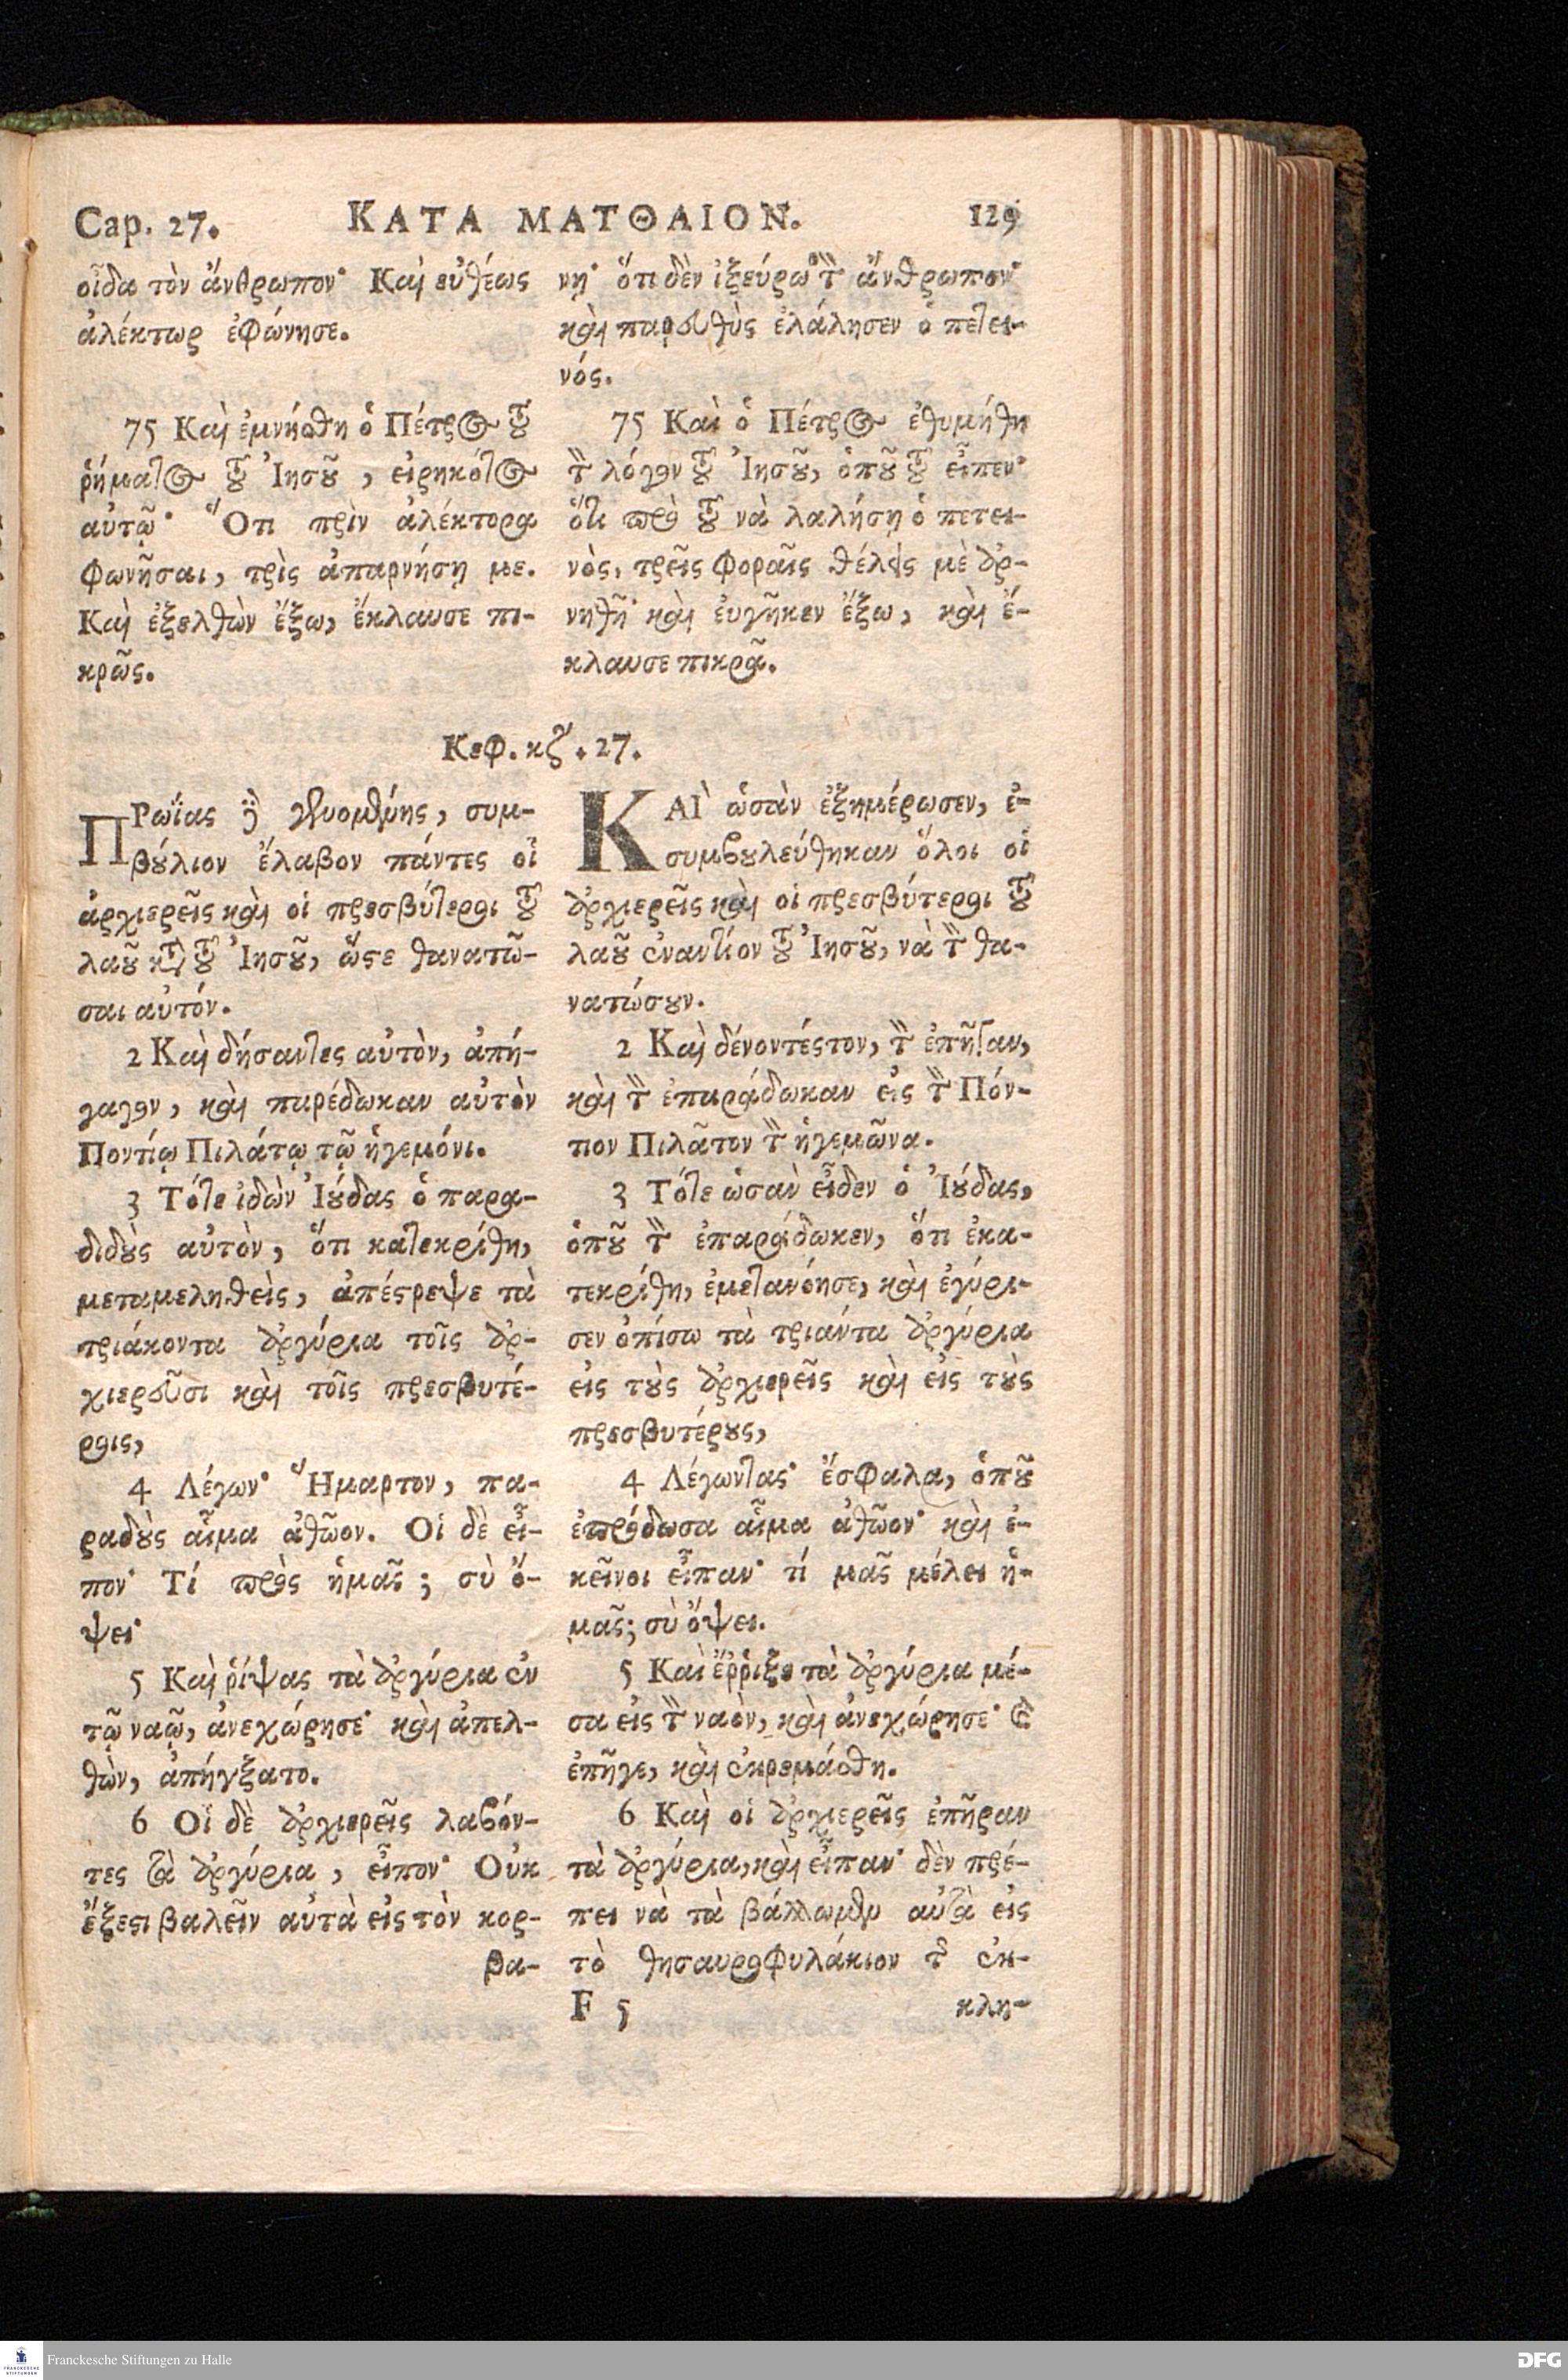 Cap. 27. ΚΑΤΑ ΜΑΤΘΑΙΟΝ. 129
οἶδα τὸν ἄνθρωπον· Καὶ εὐθέως
ἀλέκτωρ ἐφώνησε.
75 Καὶ ἐμνήσθη ὁ Πέτρος τοῦ
ῥήματος τοῦ Ἰησοῦ, εἰρηκότος
αὐτῷ· Ὅτι πρὶν ἀλέκτορα
φωνῆσαι, τρὶς ἀπαρνήσῃ με.
Καὶ ἐξελθὼν ἔξω, ἔκλαυσε πι-
κρῶς.
νῃ· ὅτι δὲν ἰξεύρω τὸν ἄνθρωπον·
καὶ παρευθὺς ἐλάλησεν ὁ πετει-
νός.
75 Καὶ ὁ Πέτρος ἐθυμήθη
τὸν λόγον τοῦ Ἰησοῦ, ὁποῦ τοῦ εἶπεν·
ὅτι πρὸ τοῦ νὰ λαλήσῃ ὁ πετει-
νὸς, τρεῖς φοραῖς θέλεις μὲ ἀρ-
νηθῆ· καὶ ἐυγῆκεν ἔξω, καὶ ἔ-
κλαυσε πικρᾶ.
Κεφ. κζʹ. 27.
ΠΡωΐας δὲ γενομένης, συμ-
βούλιον ἔλαβον πάντες οἱ
ἀρχιερεῖς καὶ οἱ πρεσβύτεροι τοῦ
λαοῦ κατὰ τοῦ Ἰησοῦ, ὥστε θανατῶ-
σαι αὐτόν.
2 Καὶ δήσαντες αὐτὸν, ἀπή-
γαγον, καὶ παρέδωκαν αὐτὸν
Ποντίῳ Πιλάτῳ τῷ ἡγεμόνι.
3 Τότε ἰδὼν Ἰούδας ὁ παρα-
διδοὺς αὐτὸν, ὅτι κατεκρίθη,
μεταμεληθεὶς, ἀπέστρεψε τὰ
τριάκοντα ἀργύρια τοῖς ἀρ-
χιερεῦσι καὶ τοῖς πρεσβυτέ-
ροις,
4 Λέγων· Ἥμαρτον, πα-
ραδοὺς αἷμα ἀθῶον. Οἱ δὲ εἶ-
πον· Τί πρὸς ἡμᾶς; σὺ ὄ-
ψει·
5 Καὶ ῥίψας τὰ ἀργύρια ἐν
τῷ ναῷ, ἀνεχώρησε· καὶ ἀπελ-
θὼν, ἀπήγξατο.
6 Οἱ δὲ ἀρχιερεῖς λαβόν-
τες τὰ ἀργύρια, εἶπον· Οὐκ
ἔξεστι βαλεῖν αὐτὰ εἰς τὸν κορ-
βα-
ΚΑῚ ὡσὰν ἐξημέρωσεν, ἐ-
συμβουλεύθηκαν ὅλοι οἱ
ἀρχιερεῖς καὶ οἱ πρεσβύτεροι τοῦ
λαοῦ ἐναντίον τοῦ Ἰησοῦ, νὰ τὸν θα-
νατώσουν.
2 Καὶ δένοντές τον, τὸν ἐπῆγαν,
καὶ τὸν ἐπαράδωκαν εἰς τὸν Πόν-
τιον Πιλᾶτον τὸν ἡγεμῶνα.
3 Τότε ὡσὰν εἶδεν ὁ Ἰούδας,
ὁποῦ τὸν ἐπαράδωκεν, ὅτι ἐκα-
τεκρίθη, ἐμετανόησε, καὶ ἐγύρι-
σεν ὀπίσω τὰ τριάντα ἀργύρια
εἰς τοὺς ἀρχιερεῖς καὶ εἰς τοὺς
πρεσβυτέρους,
4 Λέγωντας· ἔσφαλα, ὁποῦ
ἐπρόδωσα αἷμα ἀθῶον· καὶ ἐ-
κεῖνοι εἶπαν· τί μᾶς μέλει ἡ-
μᾶς; σὺ ὄψει.
5 Καὶ ἔῤῥιξε τὰ ἀργύρια μέ-
σα εἰς τὸν ναὸν, καὶ ἀνεχώρησε· καὶ
ἐπῆγε, καὶ ἐκρεμάσθη.
6 Καὶ οἱ ἀρχιερεῖς ἐπῆραν
τὰ ἀργύρια, καὶ εἶπαν· δὲν πρέ-
πει νὰ τὰ βάλλωμεν αὐτὰ εἰς
τὸ θησαυροφυλάκιον τῆς ἐκ-
F 5 κλη-
FRANCKESCHE STIFTUNGEN
Franckesche Stiftungen zu Halle
DFG